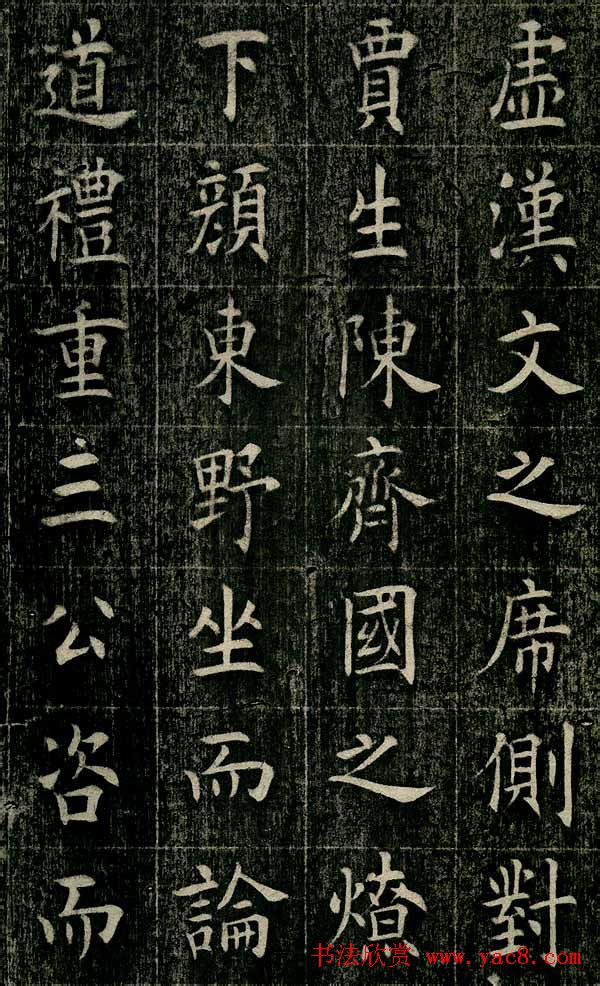 虗漢文之席側對
賈生陳齊國之燎
下顔東野坐而論
道禮重三公咨而
书法欣赏 www.yac8.com